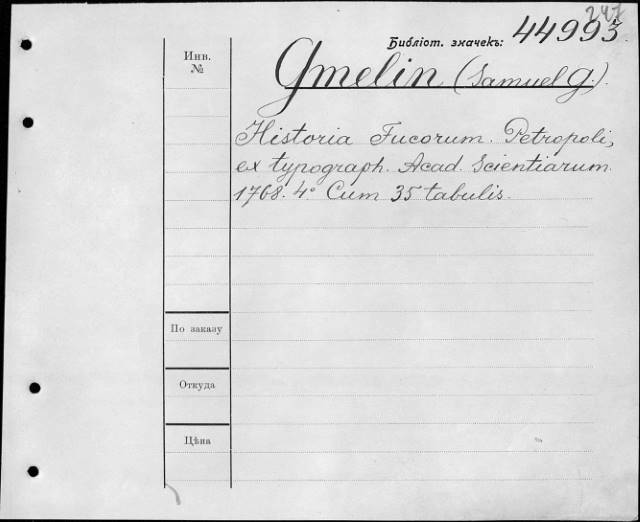 247
Библіот. значекъ: 44993.
Инв. №
Gmelin (Samuel G.).
Historia Fucorum. Petropoli,
ex typograph. Acad. Scientiarum.
1768. 4° Cum 35 tabulis.
По заказу
Откуда
Цѣна